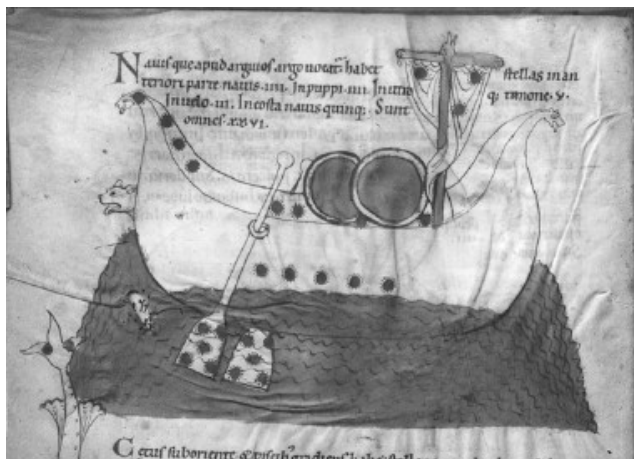 Nauis que apud arguos argo uocat̄. habet stellas in an
teriori parte nauis .iiii. In puppi .iiii. In utroq; timone .v.
In uelo .iii. In costa nauis quinq;. Sunt
omnes .xx vi.
Cetus sub oriente